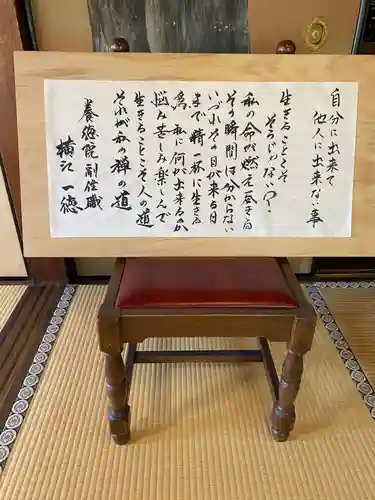 自分に出来て
他人に出来ない事
生きることこそ
そうじゃない
私の命が燃え尽きる
その時間は分からない
いづれその日が来る日
まで精一杯に生きる
為、私に何が出来るのか
悩み苦しみ楽しんで
生きることこそ人の道
それが私の禅の道
養徳院副住職
横江一徳